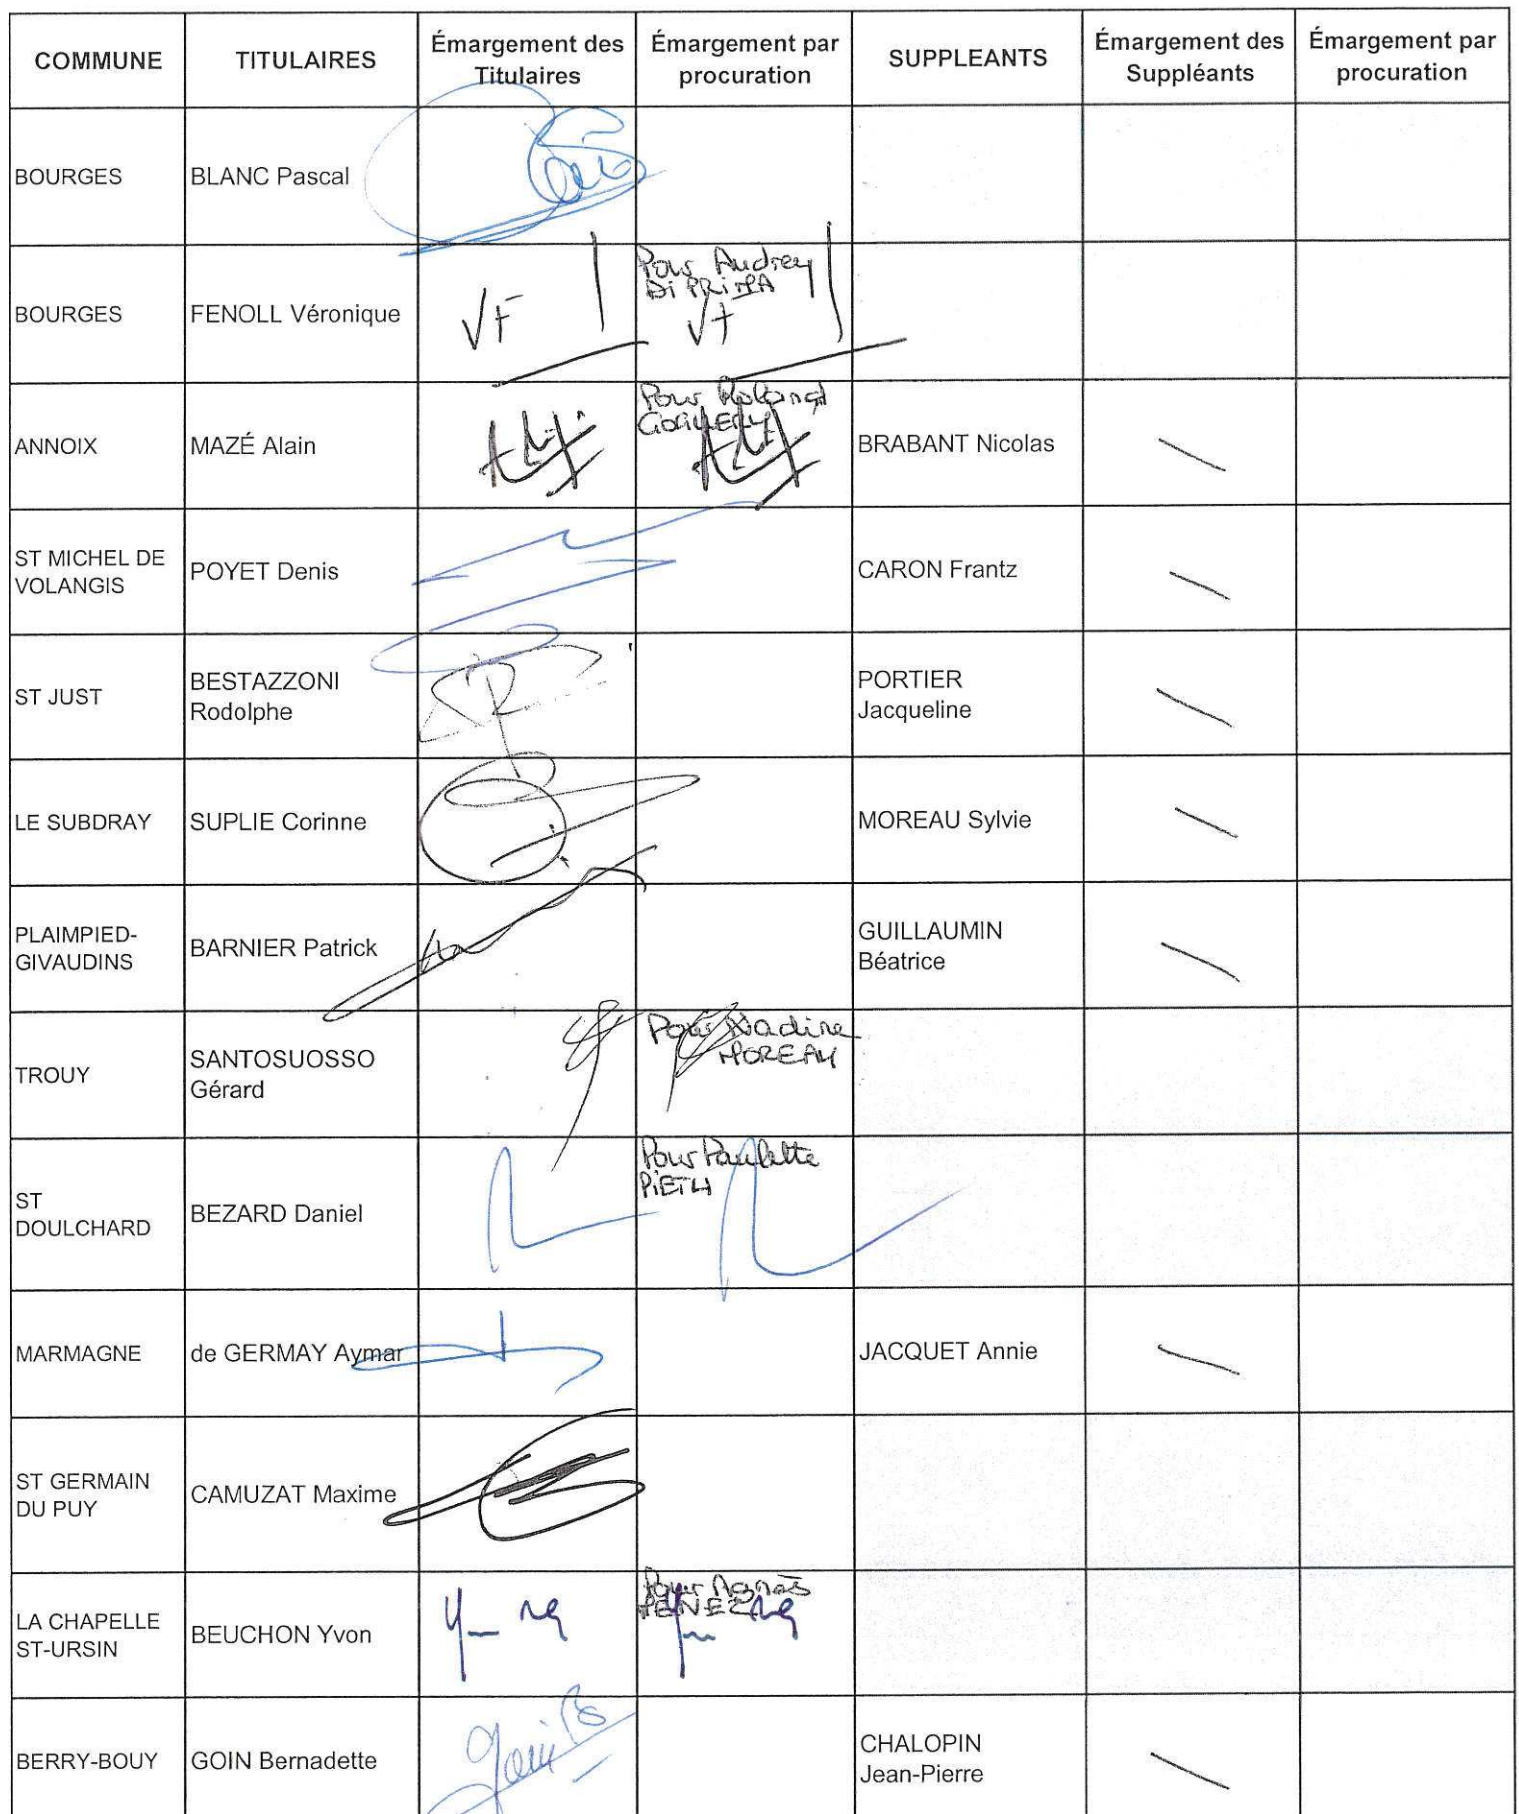 COMMUNE TITULAIRES Émargement des Titulaires Émargement par procuration SUPPLEANTS Émargement des Suppléants Émargement par procuration
BOURGES BLANC Pascal
BOURGES FENOLL Véronique VF Pour Audrey
VF
ANNOIX MAZÉ Alain Pour Roland BRABANT Nicolas
ST MICHEL DE
VOLANGIS POYET Denis CARON Frantz
ST JUST BESTAZZONI
Rodolphe PORTIER
Jacqueline
LE SUBDRAY SUPLIE Corinne MOREAU Sylvie
PLAIMPIED-
GIVAUDINS BARNIER Patrick GUILLAUMIN
Béatrice
TROUY SANTOSUOSSO
Gérard Pour Nadine
MOREAU
ST
DOULCHARD BEZARD Daniel Pour Paulette
MARMAGNE de GERMAY Aymar JACQUET Annie
ST GERMAIN
DU PUY CAMUZAT Maxime
LA CHAPELLE
ST-URSIN BEUCHON Yvon Pour Agnès
BERRY-BOUY GOIN Bernadette CHALOPIN
Jean-Pierre